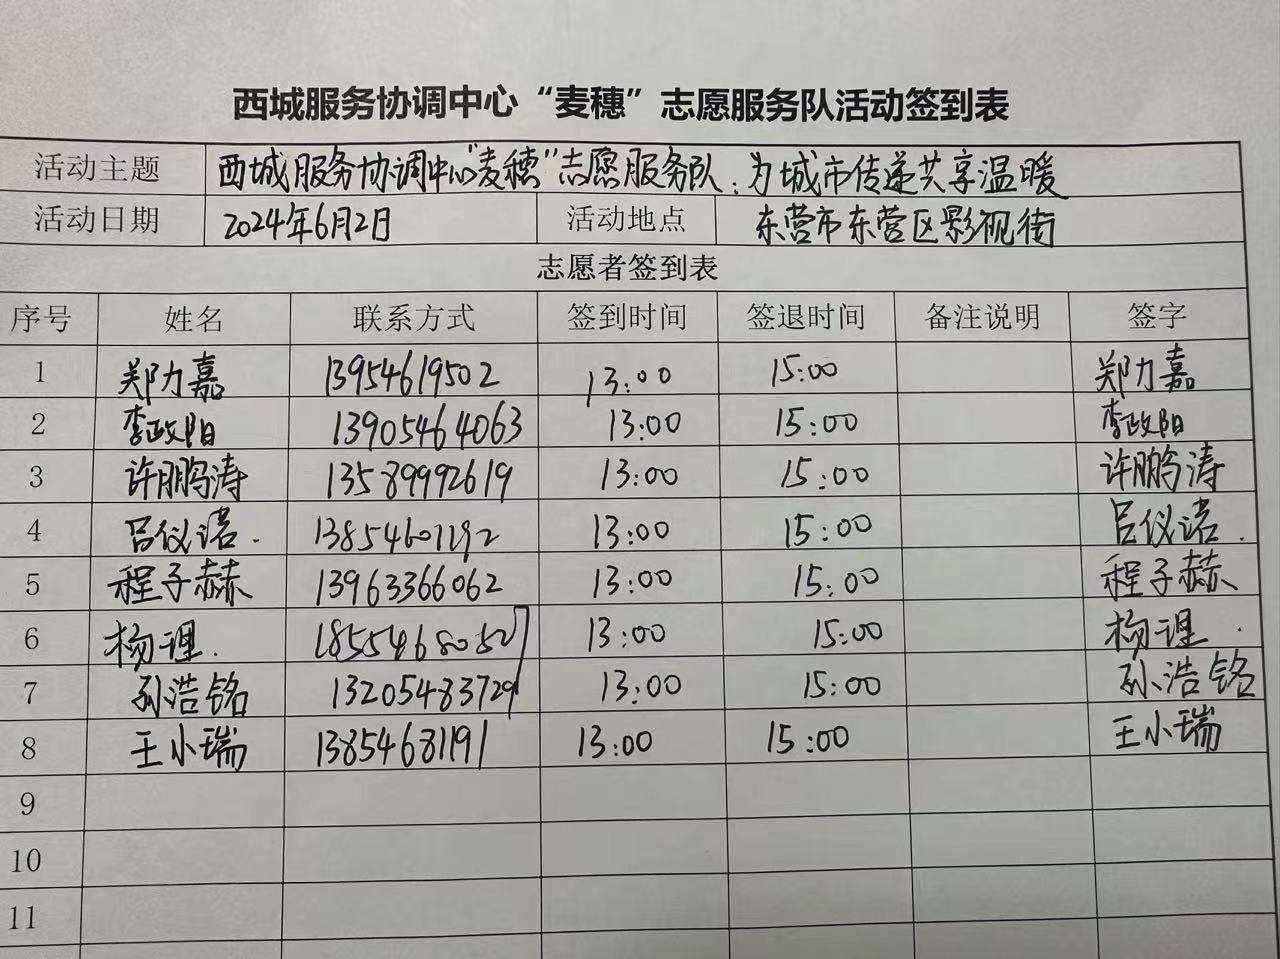 西城服务协调中心“麦穗”志愿服务队活动签到表
活动主题 西城服务协调中心“麦穗”志愿服务队：为城市传递共享温暖
活动日期 2024年6月2日 活动地点 东营市东营区影视街
志愿者签到表
序号 姓名 联系方式 签到时间 签退时间 备注说明 签字
1 郑力嘉 13954619502 13:00 15:00 郑力嘉
2 李政阳 13905464063 13:00 15:00 李政阳
3 许鹏涛 13589992619 13:00 15:00 许鹏涛
4 吕仪诺. 13:00 15:00 吕仪诺.
5 程子赫 13963366062 13:00 15:00 程子赫
6 杨理. 18554680527 13:00 15:00 杨理.
7 孙浩铭 13205483729 13:00 15:00 孙浩铭
8 王小瑞 13854681191 13:00 15:00 王小瑞
9
10
11